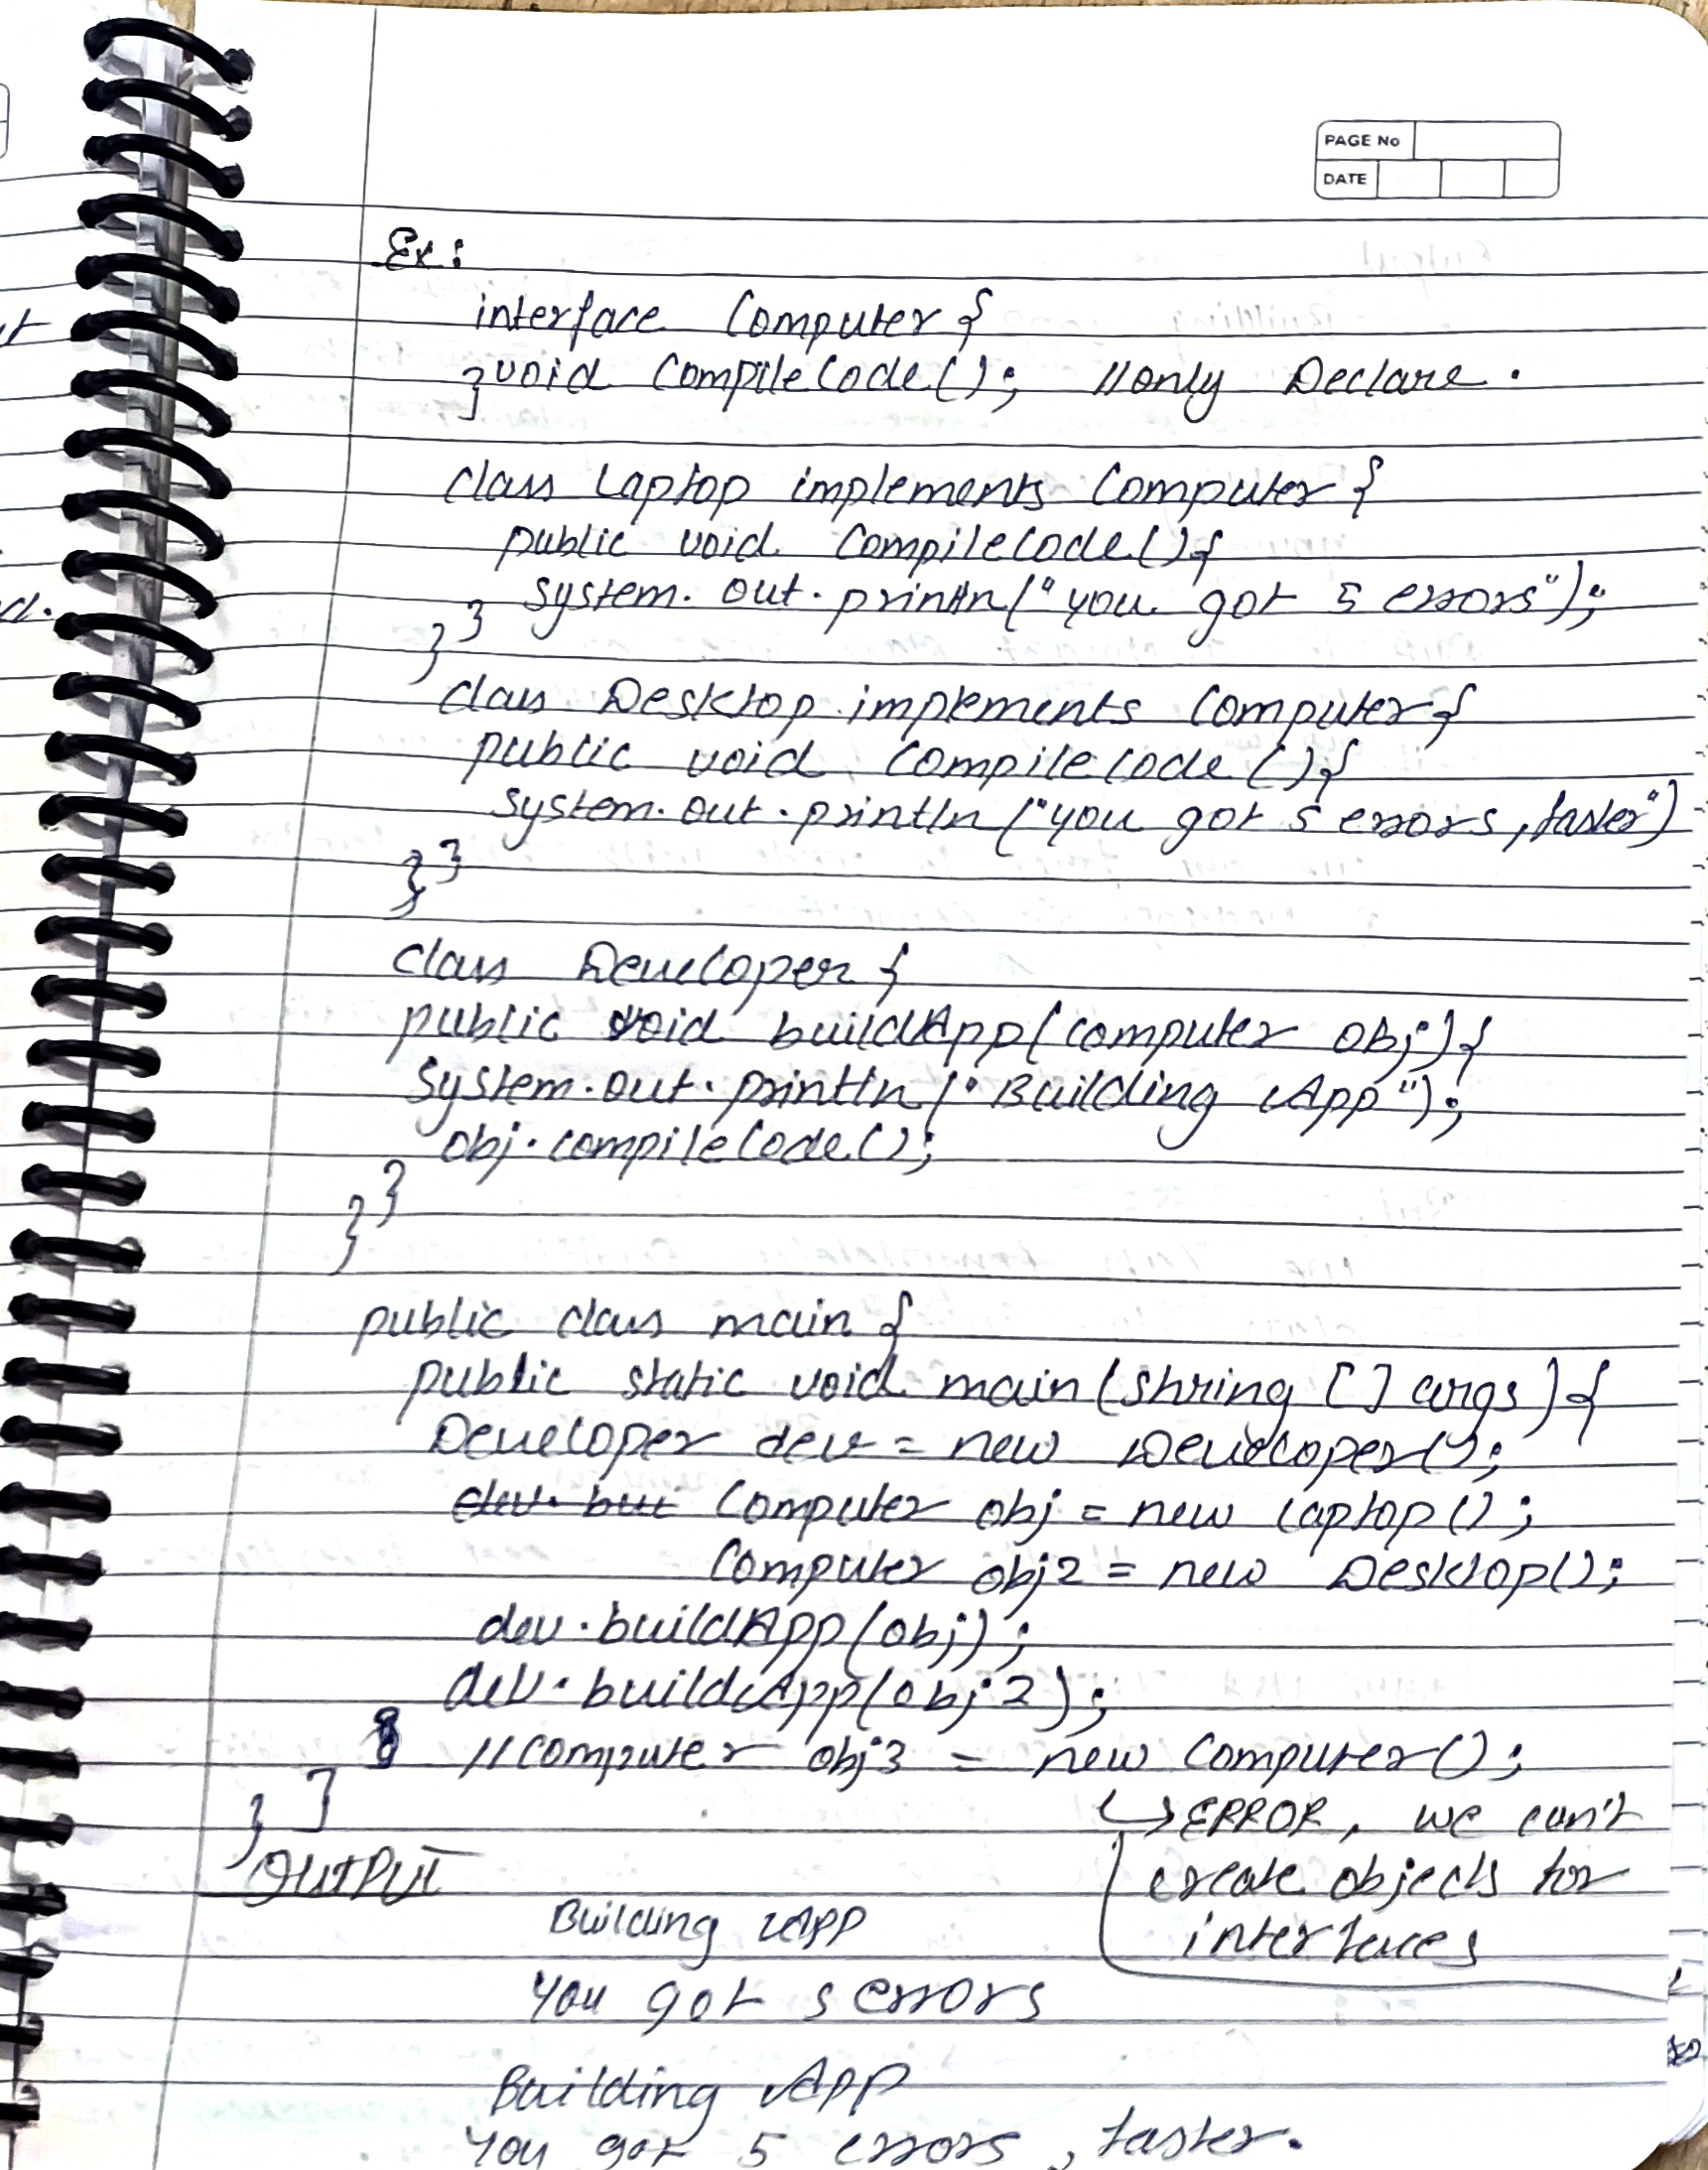 PAGE No
DATE
Ex:
interface Computer {
void CompileCode(); //only Declare.
}
class Laptop implements Computer {
public void CompileCode(){
system.out.println("you got 5 errors");
}
}
class Desktop implements Computer {
public void CompileCode(){
system.out.println("you got 5 errors, faster")
}
}
class Developer {
public void buildApp(computer obj){
System.out.println("Building App");
obj.compileCode();
}
}
public class main {
public static void main(shring [] args){
Developer dev = new Developer();
dev.bui Computer obj = new Laptop();
Computer obj2 = new Desktop();
dev.buildApp(obj);
dev.buildApp(obj2);
//computer obj3 = new Computer();
}
}
↳ ERROR, we can't
create objects for
interfaces
OUTPUT
Building App
You got 5 errors
Building App
You got 5 errors, faster.